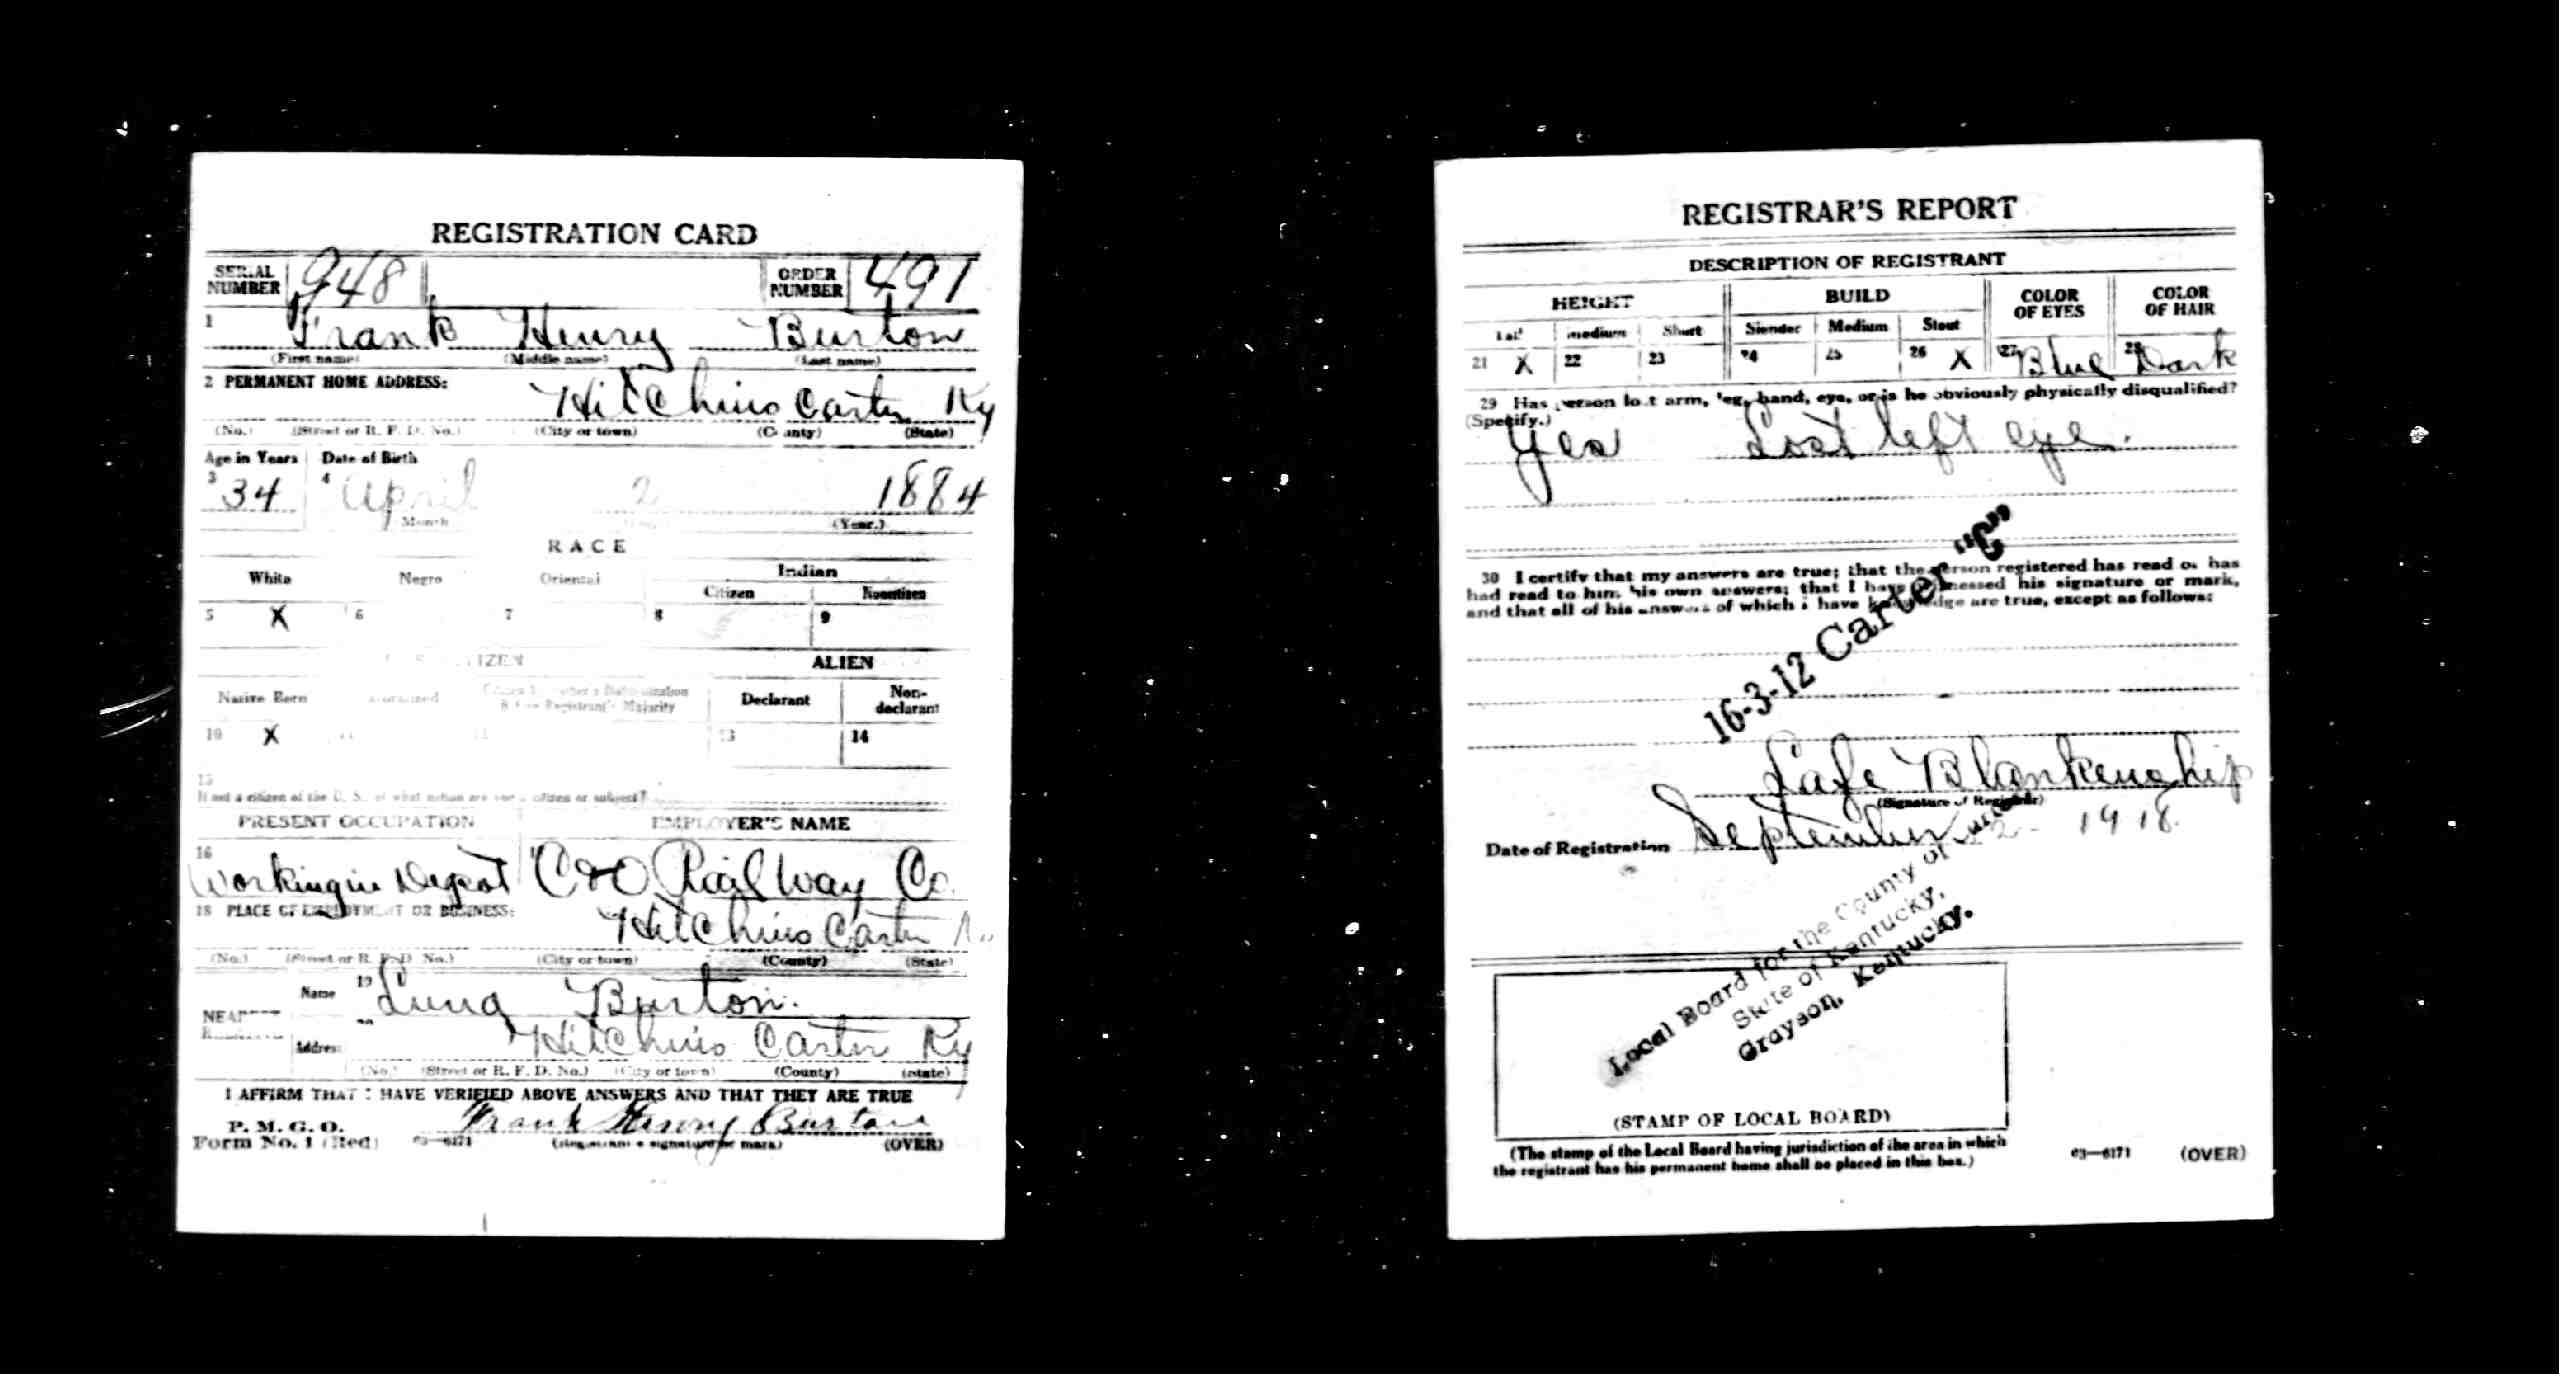 REGISTRATION CARD
SERIAL NUMBER 948 ORDER NUMBER 491
1 Frank Henry Burton
(First name) (Middle name) (Last name)
2 PERMANENT HOME ADDRESS:
Hitchins Carter Ky
(No.) (Street or R. F. D. No.) (City or town) (County) (State)
Age in Years Date of Birth
3 34 4 April 2 1884
Month (Year.)
RACE
White Negro Oriental Indian
Citizen Noncitizen
5 X 6 7 8 9
CITIZEN ALIEN
Native Born Declarant Non-declarant
10 X 13 14
15
If not a citizen of the U. S., of what nation are you a citizen or subject?
PRESENT OCCUPATION EMPLOYER'S NAME
16 Working in Depot C&O Railway Co.
18 PLACE OF EMPLOYMENT OR BUSINESS:
Hitchins Carter
(No.) (Street or R. F. D. No.) (City or town) (County) (State)
NEAREST Name 19 Burton.
Address Hitchins Carter Ky
(No.) (Street or R. F. D. No.) (City or town) (County) (State)
I AFFIRM THAT I HAVE VERIFIED ABOVE ANSWERS AND THAT THEY ARE TRUE
P. M. G. O.
Form No. 1 (Red) 03—6171 Frank Henry Burton
(Registrant's signature or mark) (OVER)
REGISTRAR'S REPORT
DESCRIPTION OF REGISTRANT
HEIGHT BUILD COLOR OF EYES COLOR OF HAIR
Tall Medium Short Slender Medium Stout
21 X 22 23 24 25 26 X 27 Blue 28 Dark
29 Has person lost arm, leg, hand, eye, or is he obviously physically disqualified?
(Specify.)
Yes Lost left eye.
30 I certify that my answers are true; that the person registered has read or has
had read to him his own answers; that I have witnessed his signature or mark,
and that all of his answers of which I have knowledge are true, except as follows:
16-3-12 Carter "C"
Lafe Blankenship
(Signature of Registrar)
Date of Registration September 12 - 1918.
Local Board for the County of Carter
State of Kentucky,
Grayson, Kentucky.
(STAMP OF LOCAL BOARD)
(The stamp of the Local Board having jurisdiction of the area in which
the registrant has his permanent home shall be placed in this box.)
03—6171 (OVER)